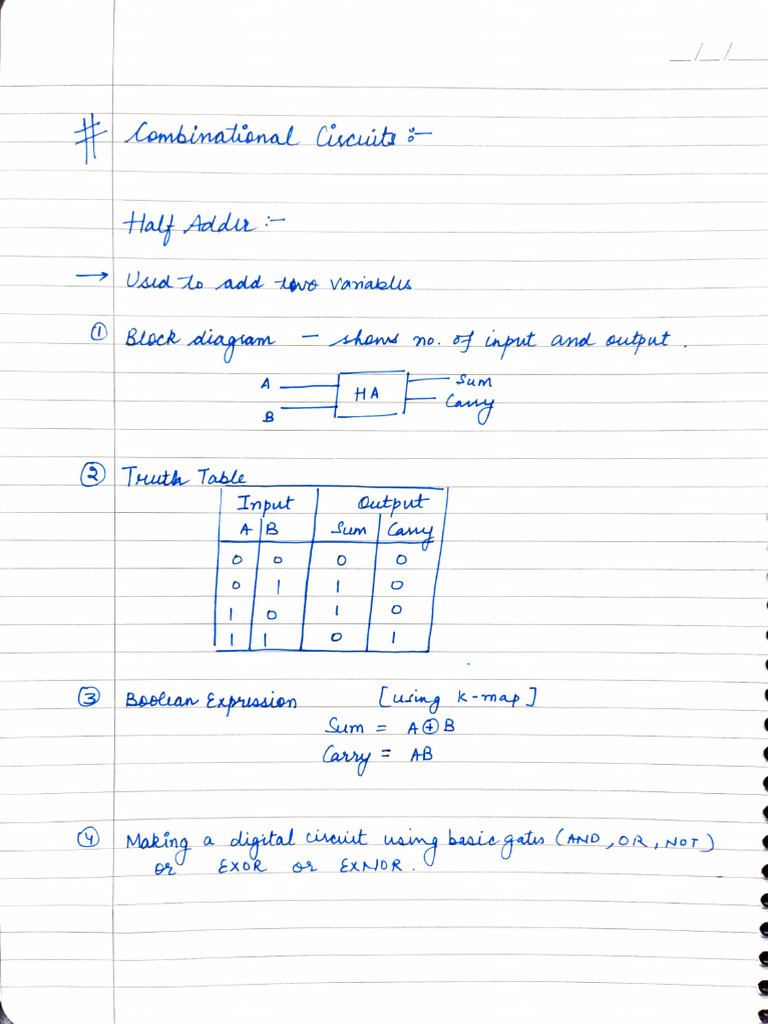 __/__/__
# Combinational Circuits :-
Half Adder :-
→ Used to add two variables
① Block diagram - shows no. of input and output .
A HA Sum
B Carry
② Truth Table
Input Output
A B Sum Carry
0 0 0 0
0 1 1 0
1 0 1 0
1 1 0 1
③ Boolean Expression [using K-map]
Sum = A⊕B
Carry = AB
④ Making a digital circuit using basic gates (AND, OR, NOT)
or EXOR or EXNOR.